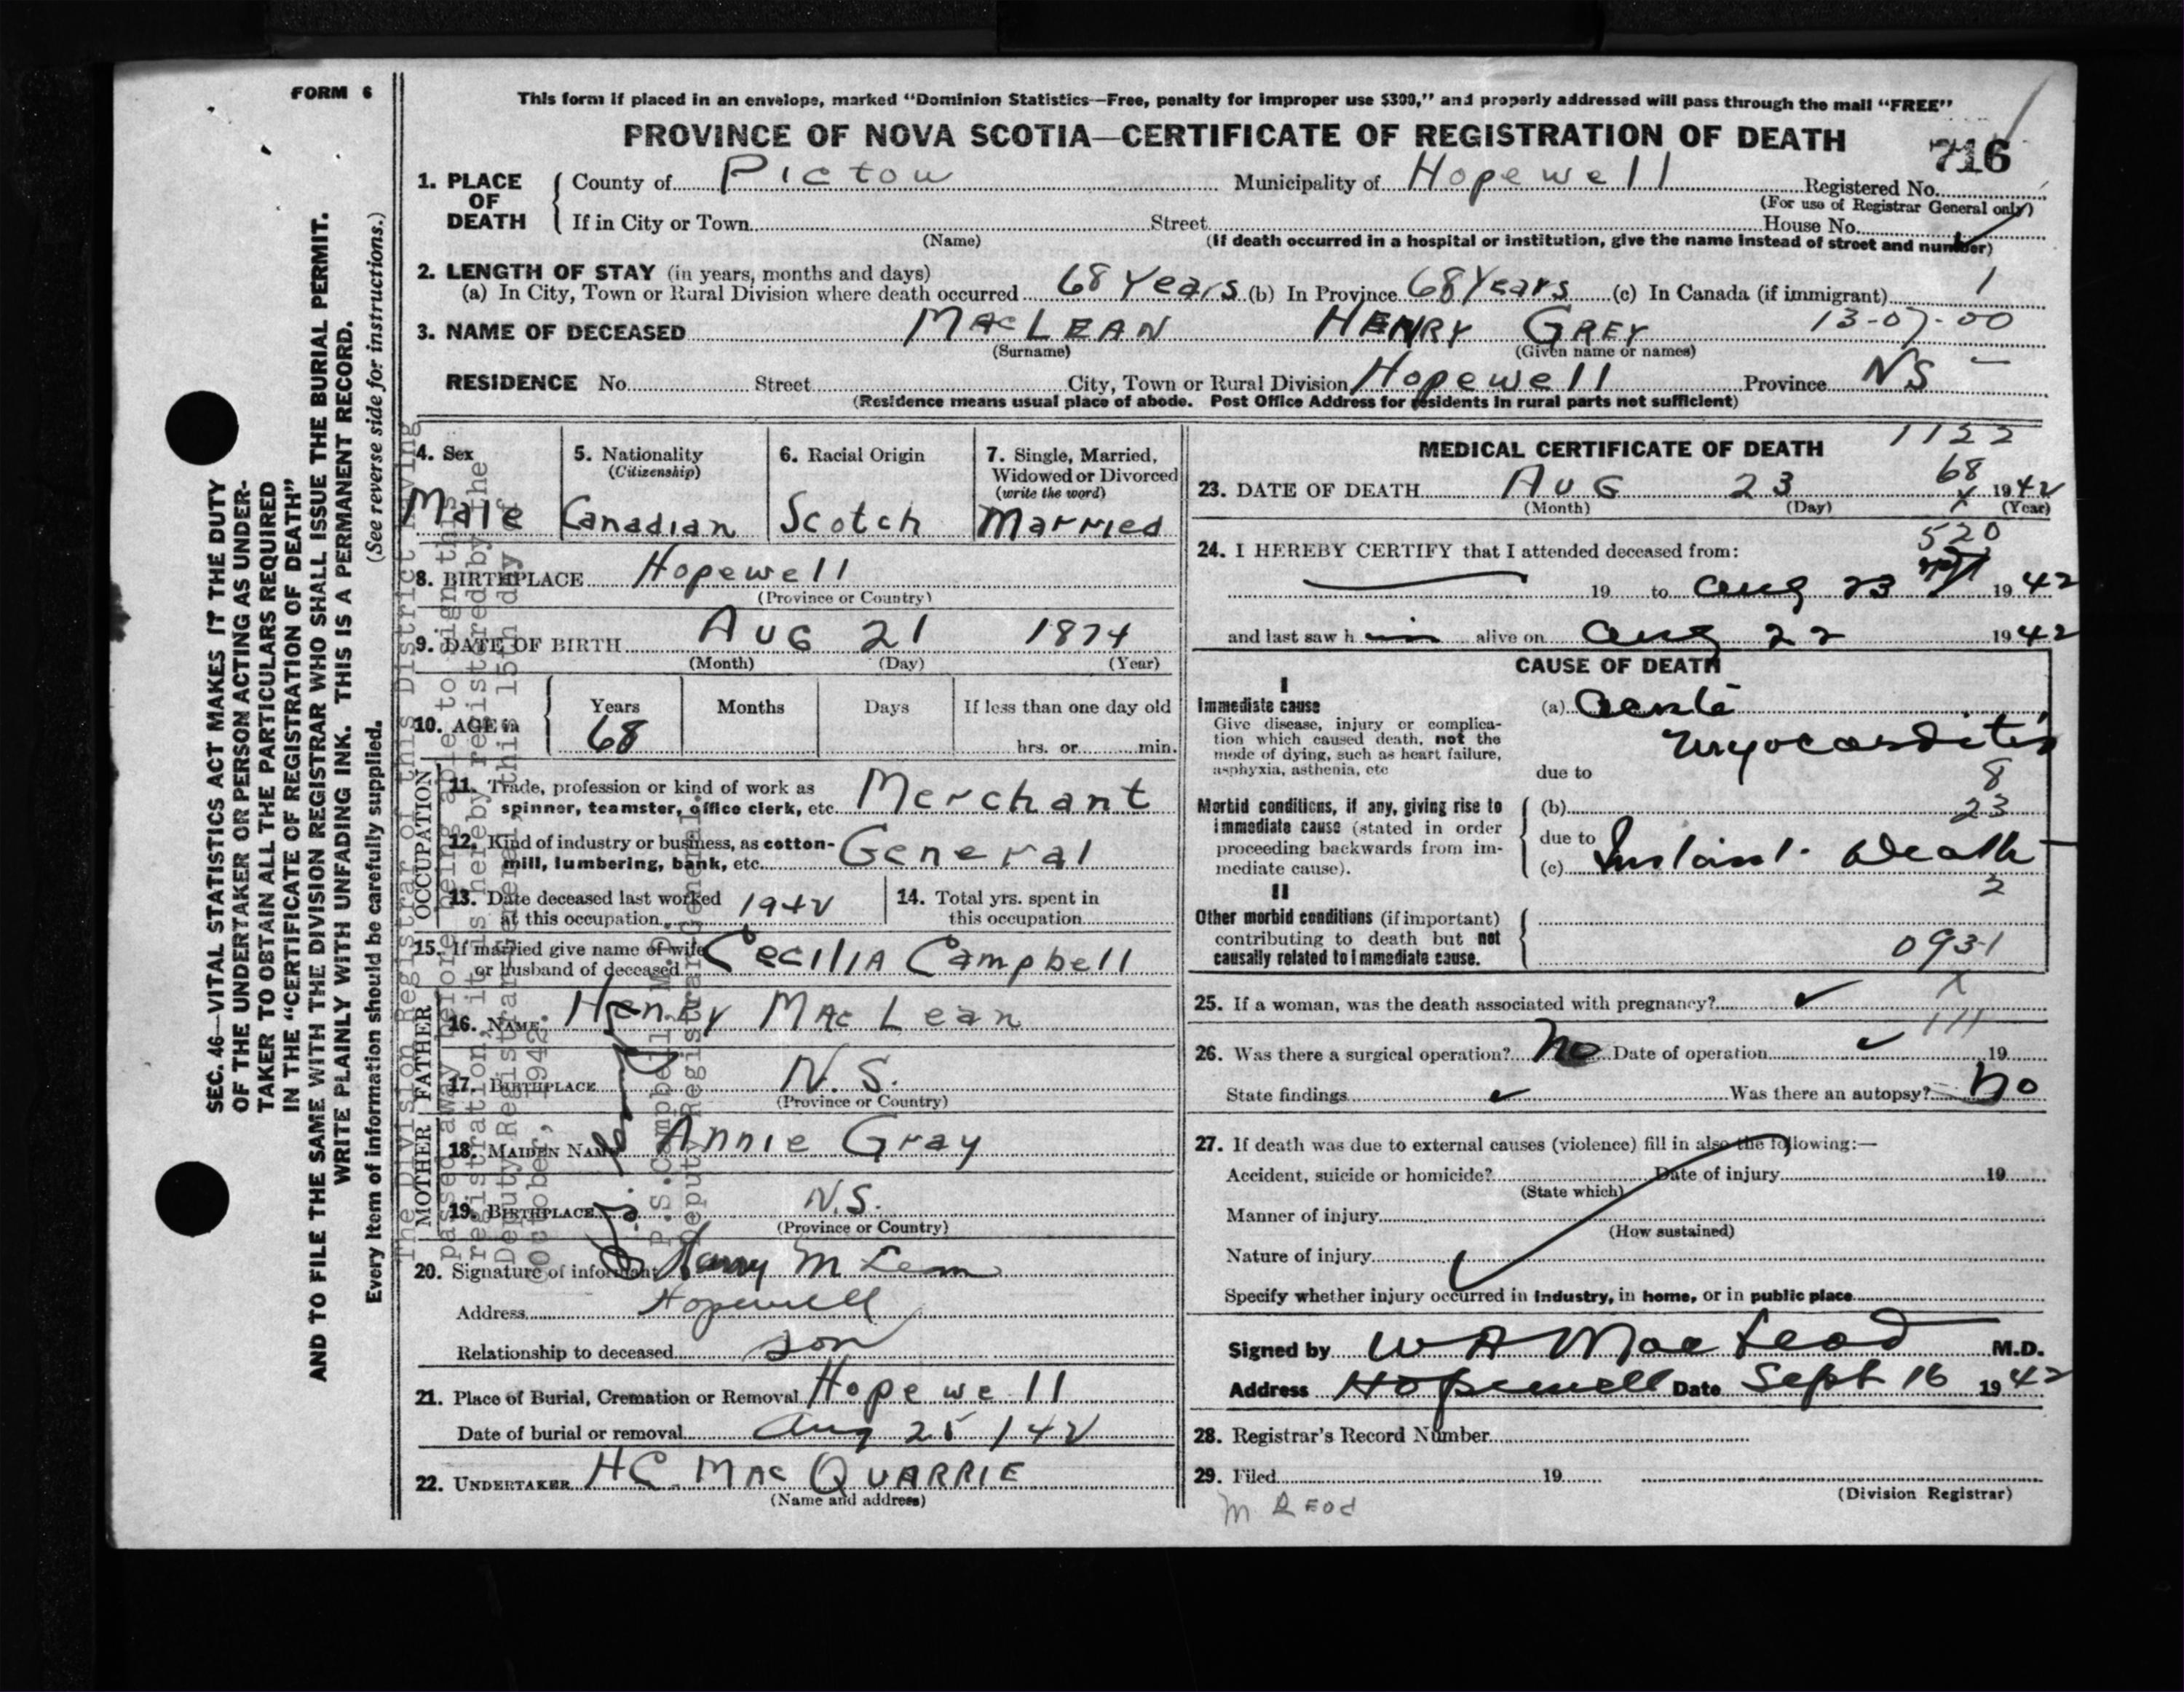 FORM 6
This form if placed in an envelope, marked "Dominion Statistics—Free, penalty for improper use $300," and properly addressed will pass through the mail "FREE"
PROVINCE OF NOVA SCOTIA—CERTIFICATE OF REGISTRATION OF DEATH
716
1. PLACE OF DEATH County of Pictou Municipality of Hopewell Registered No.
(For use of Registrar General only)
If in City or Town Street House No.
(Name) (If death occurred in a hospital or institution, give the name instead of street and number)
2. LENGTH OF STAY (in years, months and days)
(a) In City, Town or Rural Division where death occurred 68 Years (b) In Province 68 Years (c) In Canada (if immigrant) 1
3. NAME OF DECEASED MacLEAN HENRY GREY 13-07-00
(Surname) (Given name or names)
RESIDENCE No. Street City, Town or Rural Division Hopewell Province NS
(Residence means usual place of abode. Post Office Address for residents in rural parts not sufficient)
4. Sex Male
5. Nationality (Citizenship) Canadian
6. Racial Origin Scotch
7. Single, Married, Widowed or Divorced (write the word) Married
8. BIRTHPLACE Hopewell
(Province or Country)
9. DATE OF BIRTH AUG 21 1874
(Month) (Day) (Year)
10. AGE in Years 68 Months Days If less than one day old
hrs. or min.
OCCUPATION
11. Trade, profession or kind of work as
spinner, teamster, office clerk, etc. Merchant
12. Kind of industry or business, as cotton-
mill, lumbering, bank, etc. General
13. Date deceased last worked
at this occupation 1942
14. Total yrs. spent in
this occupation
15. If married give name of wife
or husband of deceased Cecilia Campbell
FATHER
16. NAME Henry MacLean
17. BIRTHPLACE N.S.
(Province or Country)
MOTHER
18. MAIDEN NAME Annie Gray
19. BIRTHPLACE N.S.
(Province or Country)
20. Signature of informant Harry McLean
Address Hopewell
Relationship to deceased son
21. Place of Burial, Cremation or Removal Hopewell
Date of burial or removal Aug 25 / 42
22. UNDERTAKER HC. MacQUARRIE
(Name and address)
MEDICAL CERTIFICATE OF DEATH 1122
68
23. DATE OF DEATH AUG 23 1942
(Month) (Day) (Year)
520
24. I HEREBY CERTIFY that I attended deceased from:
19 to Aug 23 1942
and last saw h im alive on Aug 22 1942
CAUSE OF DEATH
I
Immediate cause
Give disease, injury or complica-
tion which caused death, not the
mode of dying, such as heart failure,
asphyxia, asthenia, etc
(a) Acute
Myocarditis
due to
8
Morbid conditions, if any, giving rise to
immediate cause (stated in order
proceeding backwards from im-
mediate cause).
(b) 23
due to
(c) Instant Death
2
II
Other morbid conditions (if important)
contributing to death but not
causally related to immediate cause.
0931
25. If a woman, was the death associated with pregnancy? ✓
111
26. Was there a surgical operation? No Date of operation ✓ 19
State findings ✓ Was there an autopsy? No
27. If death was due to external causes (violence) fill in also the following:—
Accident, suicide or homicide? Date of injury 19
(State which)
Manner of injury
(How sustained)
Nature of injury
Specify whether injury occurred in industry, in home, or in public place
Signed by W A MacLeod M.D.
Address Hopewell Date Sept 16 1942
28. Registrar's Record Number
29. Filed 19
(Division Registrar)
SEC. 46—VITAL STATISTICS ACT MAKES IT THE DUTY
OF THE UNDERTAKER OR PERSON ACTING AS UNDER-
TAKER TO OBTAIN ALL THE PARTICULARS REQUIRED
IN THE "CERTIFICATE OF REGISTRATION OF DEATH"
AND TO FILE THE SAME WITH THE DIVISION REGISTRAR WHO SHALL ISSUE THE BURIAL PERMIT.
WRITE PLAINLY WITH UNFADING INK. THIS IS A PERMANENT RECORD.
Every item of information should be carefully supplied. (See reverse side for instructions.)
The Division Registrar of this District having
passed away before being able to sign this
registration, it is hereby registered by the
Deputy Registrar General, this 15th day of
October, 1942.
P.S. Campbell, M.D.
Deputy Registrar General.